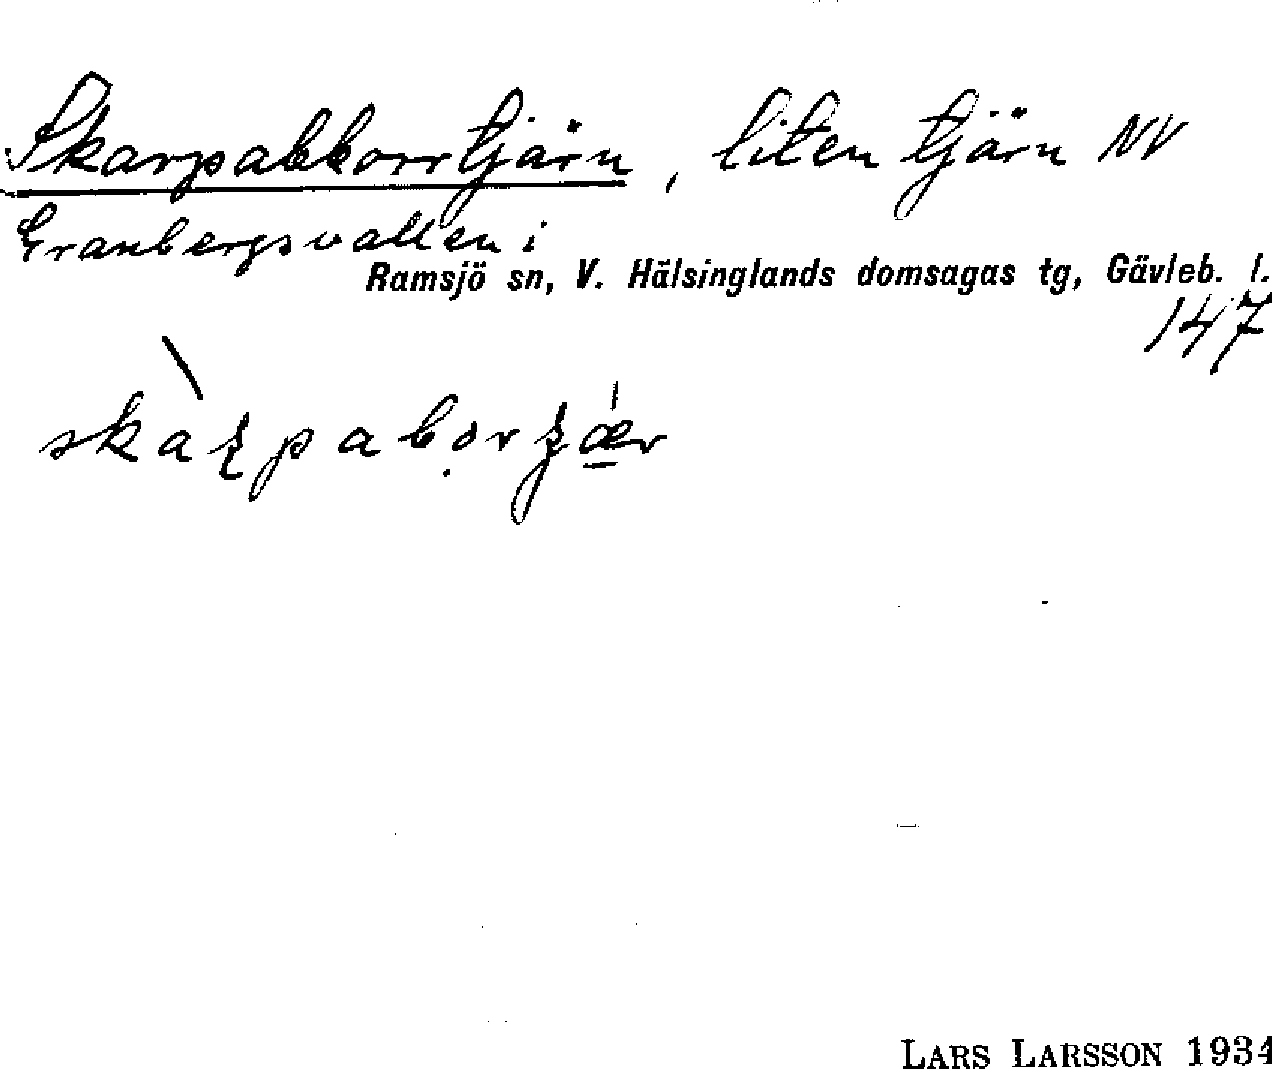 Skarpabborrtjärn, liten tjärn NV
Granbergsvallen i
Ramsjö sn, V. Hälsinglands domsagas tg, Gävleb. l.
147
LARS LARSSON 1934